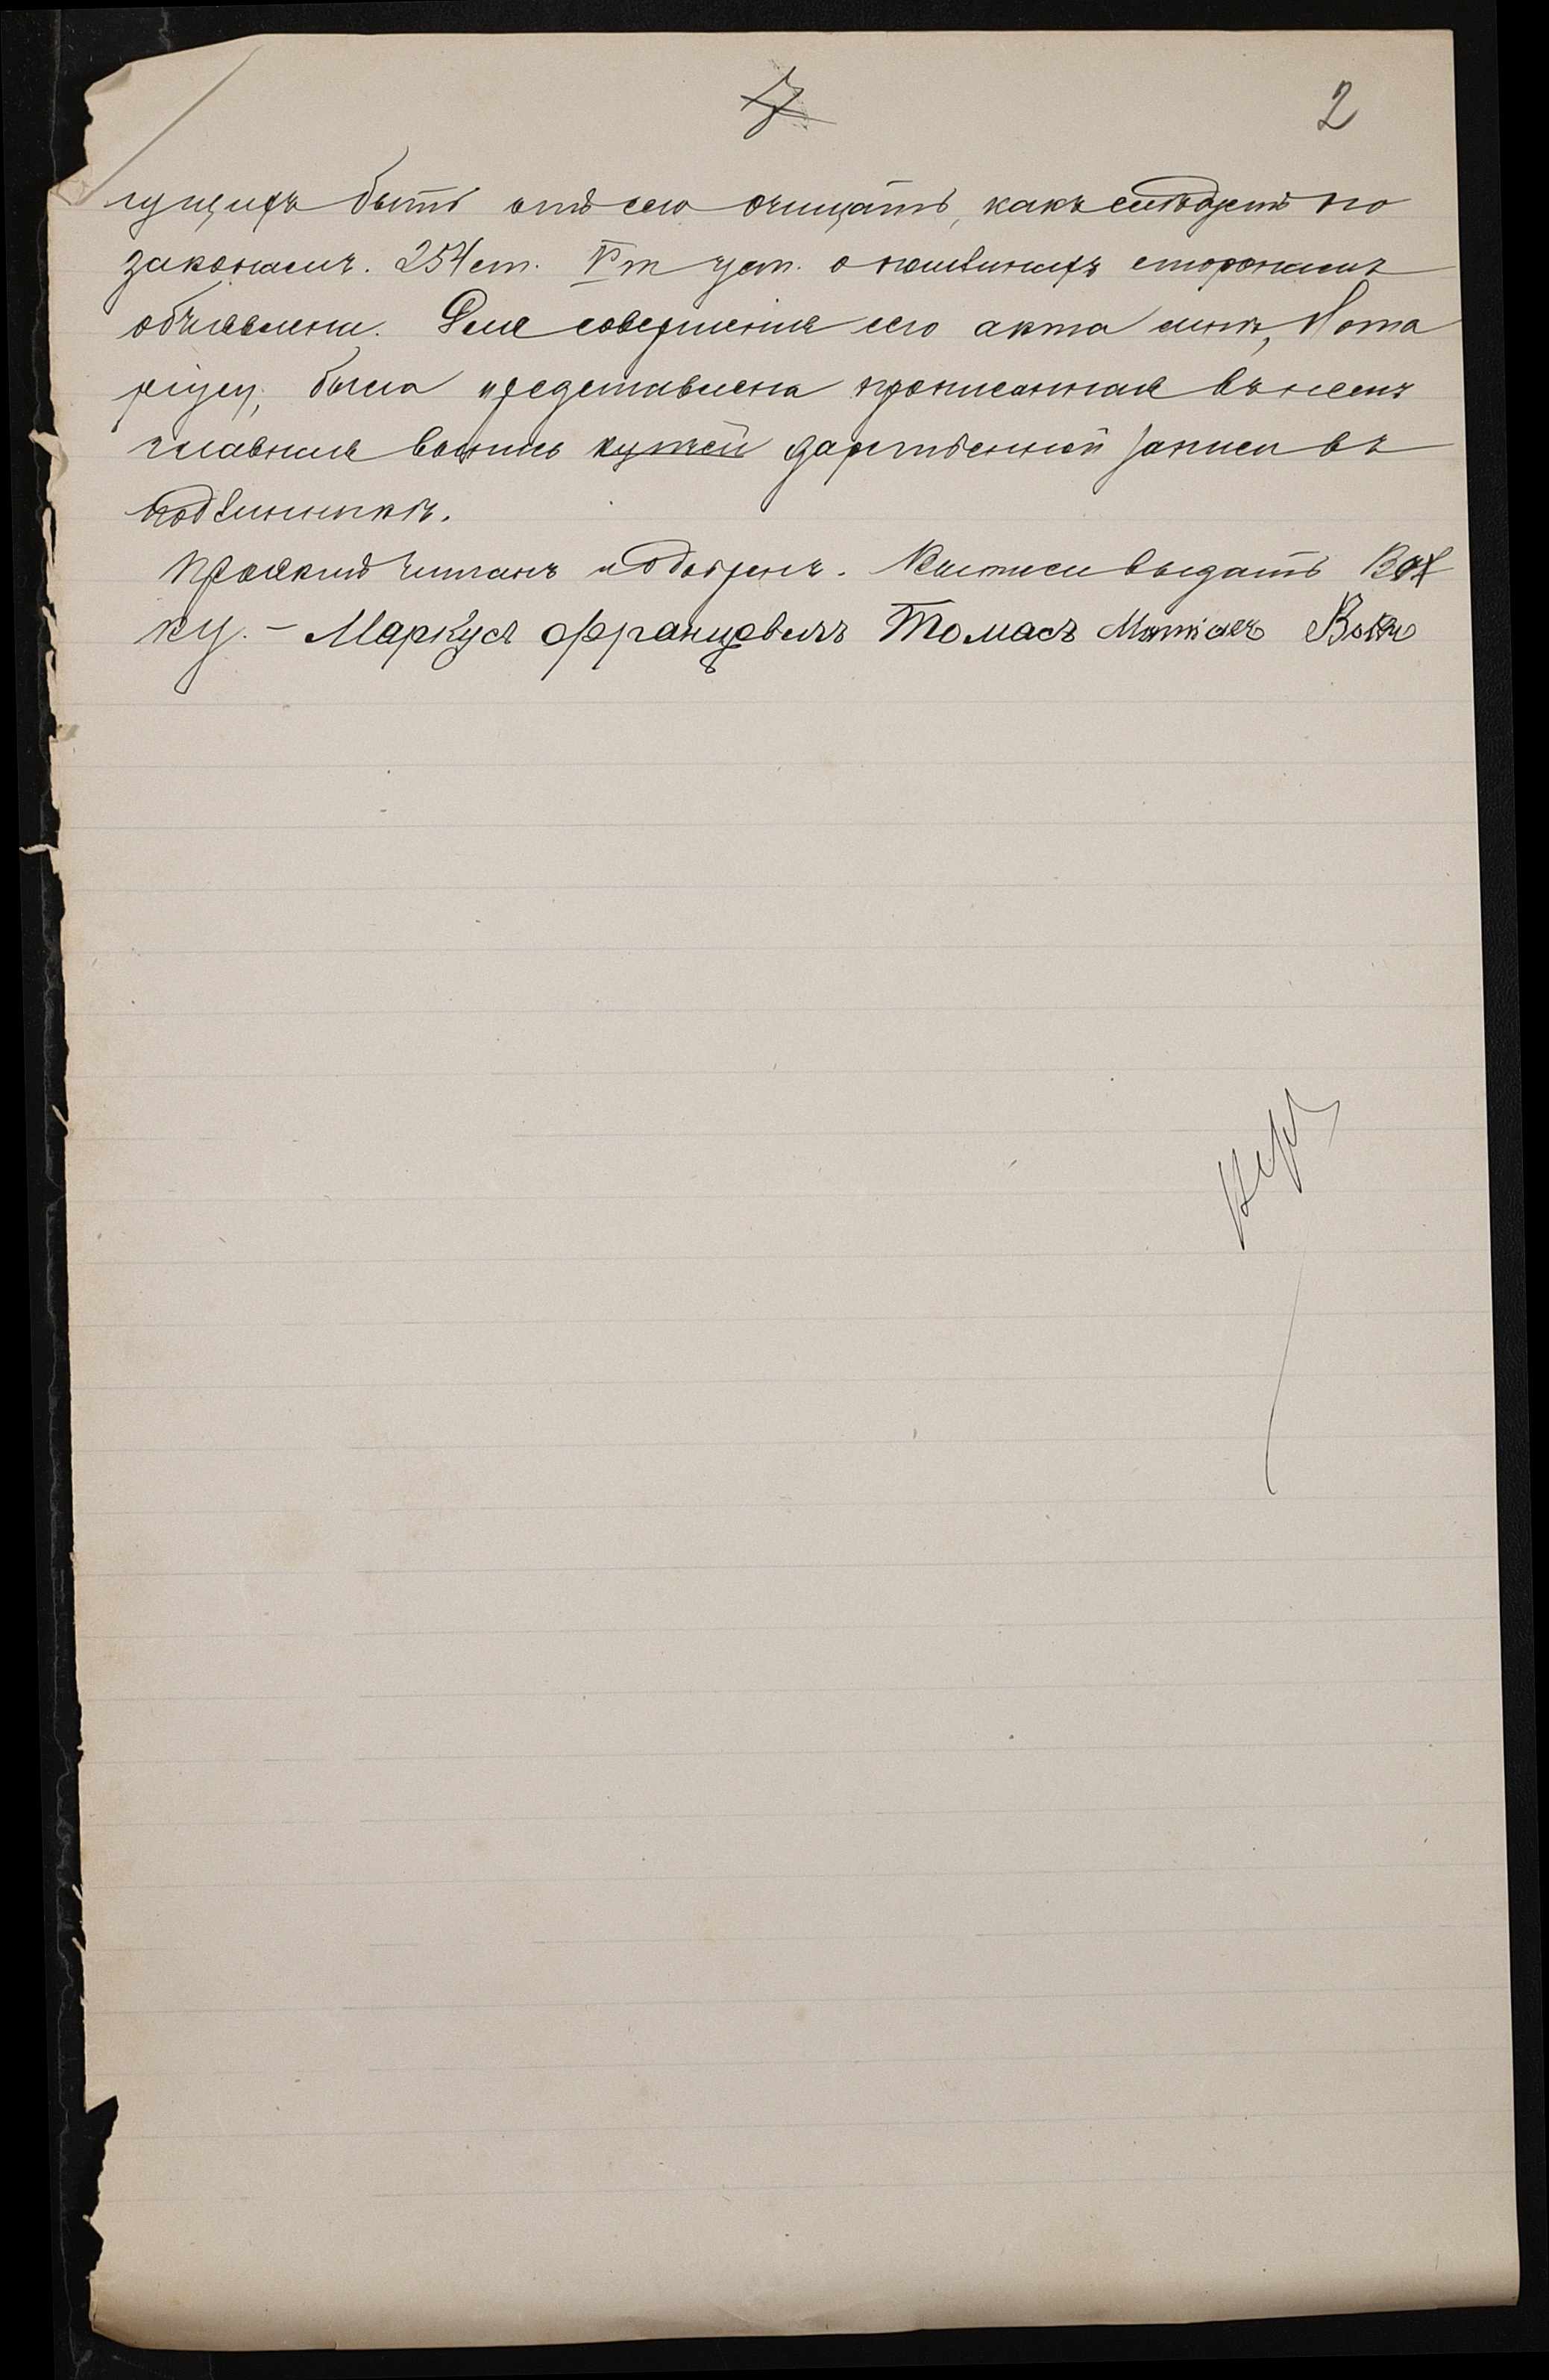 2
гущихъ быть отъ сего очищать, какъ слѣдуетъ по
законамъ. 254 ст. V т уст. о пошлинахъ сторонамъ
объявлена. Для совершенія сего акта мнѣ, Нота
ріусу, была представлена прописанная въ немъ
главная выпись купчей дарственной записи въ
подлинникѣ.
Проектъ читанъ и одобренъ. Выписи выдать Вол
ку. – Маркусъ Францовичъ Томасъ